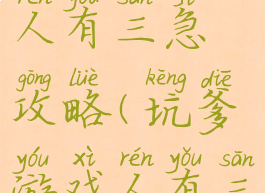 rén yǒu sān jí
人有三急
gōng lüè kēng diē
攻略(坑爹
yóu xì rén yǒu sān
游戏人有三